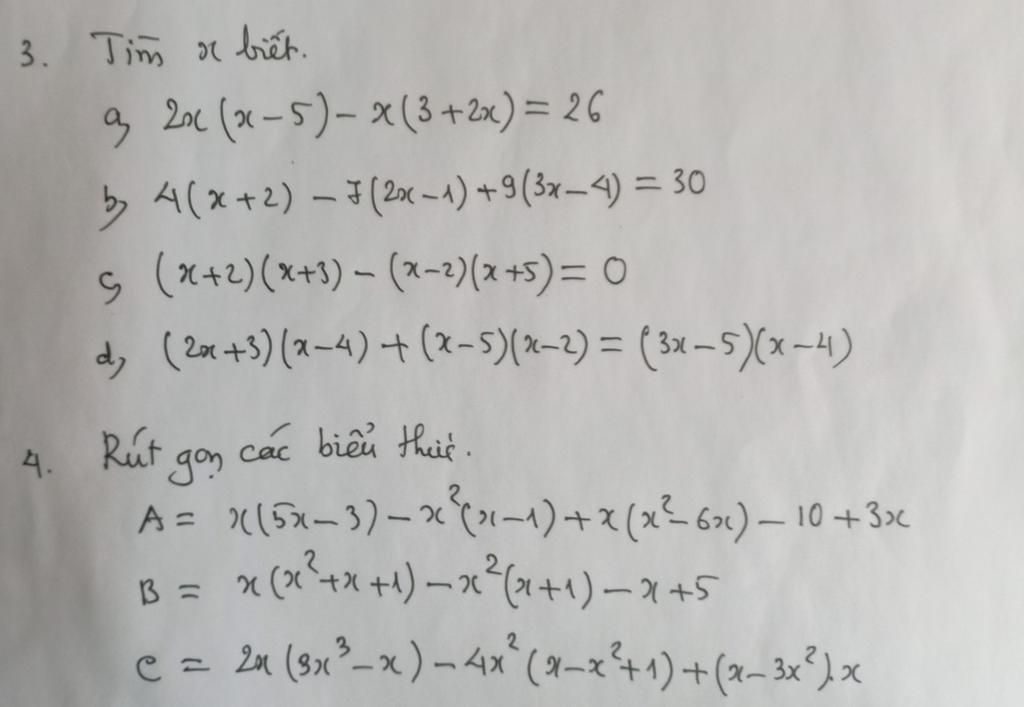 3. Tìm x biết.
a, 2x(x-5) - x(3+2x) = 26
b, 4(x+2) - 7(2x-1) + 9(3x-4) = 30
c, (x+2)(x+3) - (x-2)(x+5) = 0
d, (2x+3)(x-4) + (x-5)(x-2) = (3x-5)(x-4)
4. Rút gọn các biểu thức.
A = x(5x-3) - x²(x-1) + x(x²-6x) - 10 + 3x
B = x(x²+x+1) - x²(x+1) - x + 5
C = 2x(3x³-x) - 4x²(x-x²+1) + (x-3x²).x